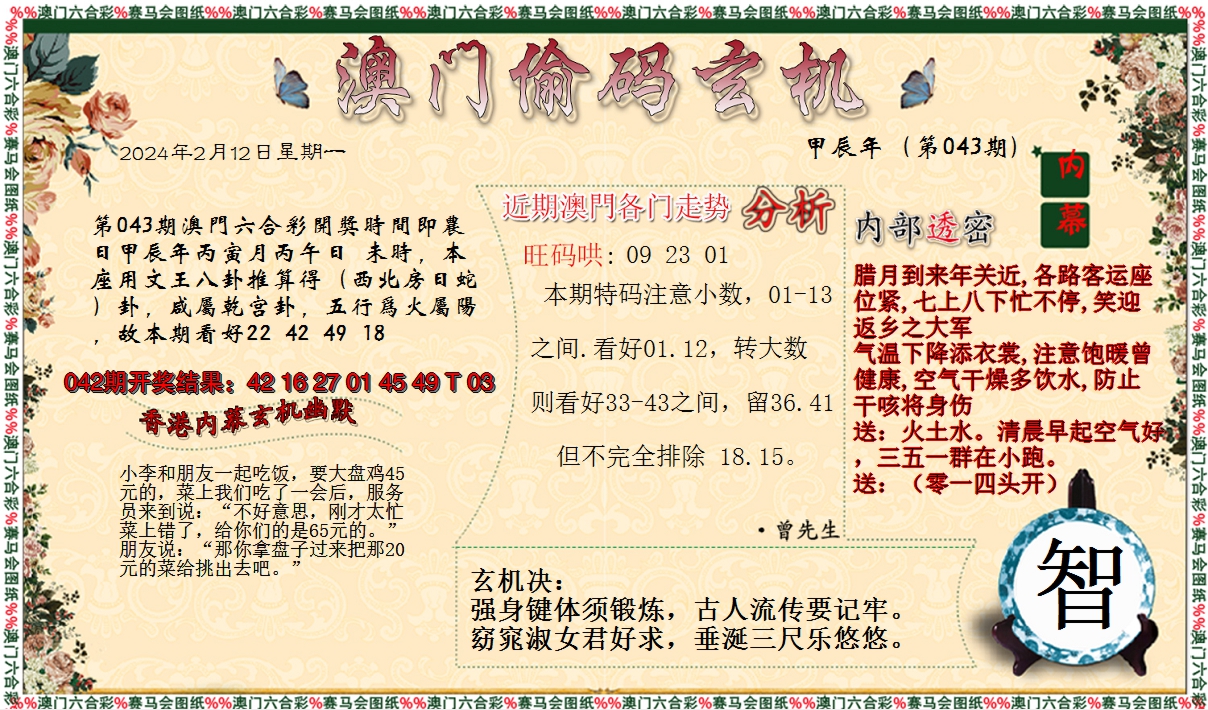 %%澳门六合彩%赛马会图纸%%澳门六合彩%赛马会图纸%%澳门六合彩%赛马会图纸%%澳门六合彩%赛马会图纸%%澳门六合彩%赛马会图纸%%澳门六合彩%赛马会图纸%%
澳门偷码玄机
2024年2月12日星期一
甲辰年（第043期）
内幕
第043期澳門六合彩開獎時間即農
日甲辰年丙寅月丙午日 未時，本
座用文王八卦推算得（西北房日蛇
）卦，咸屬乾宫卦，五行爲火屬陽
，故本期看好22 42 49 18
042期开奖结果：42 16 27 01 45 49 T 03
香港内幕玄机幽默
小李和朋友一起吃饭，要大盘鸡45
元的，菜上我们吃了一会后，服务
员来到说：“不好意思，刚才太忙
菜上错了，给你们的是65元的。”
朋友说：“那你拿盘子过来把那20
元的菜给挑出去吧。”
近期澳門各门走势 分析
旺码哄: 09 23 01
本期特码注意小数，01-13
之间.看好01.12，转大数
则看好33-43之间，留36.41
但不完全排除 18.15。
·曾先生
内部透密
腊月到来年关近,各路客运座
位紧,七上八下忙不停,笑迎
返乡之大军
气温下降添衣裳,注意饱暖曾
健康,空气干燥多饮水,防止
干咳将身伤
送：火土水。清晨早起空气好
，三五一群在小跑。
送：（零一四头开）
玄机决：
强身键体须锻炼，古人流传要记牢。
窈窕淑女君好求，垂涎三尺乐悠悠。
智
%%澳门六合彩%赛马会图纸%%澳门六合彩%赛马会图纸%%澳门六合彩%赛马会图纸%%澳门六合彩%赛马会图纸%%澳门六合彩%赛马会图纸%%澳门六合彩%赛马会图纸%%